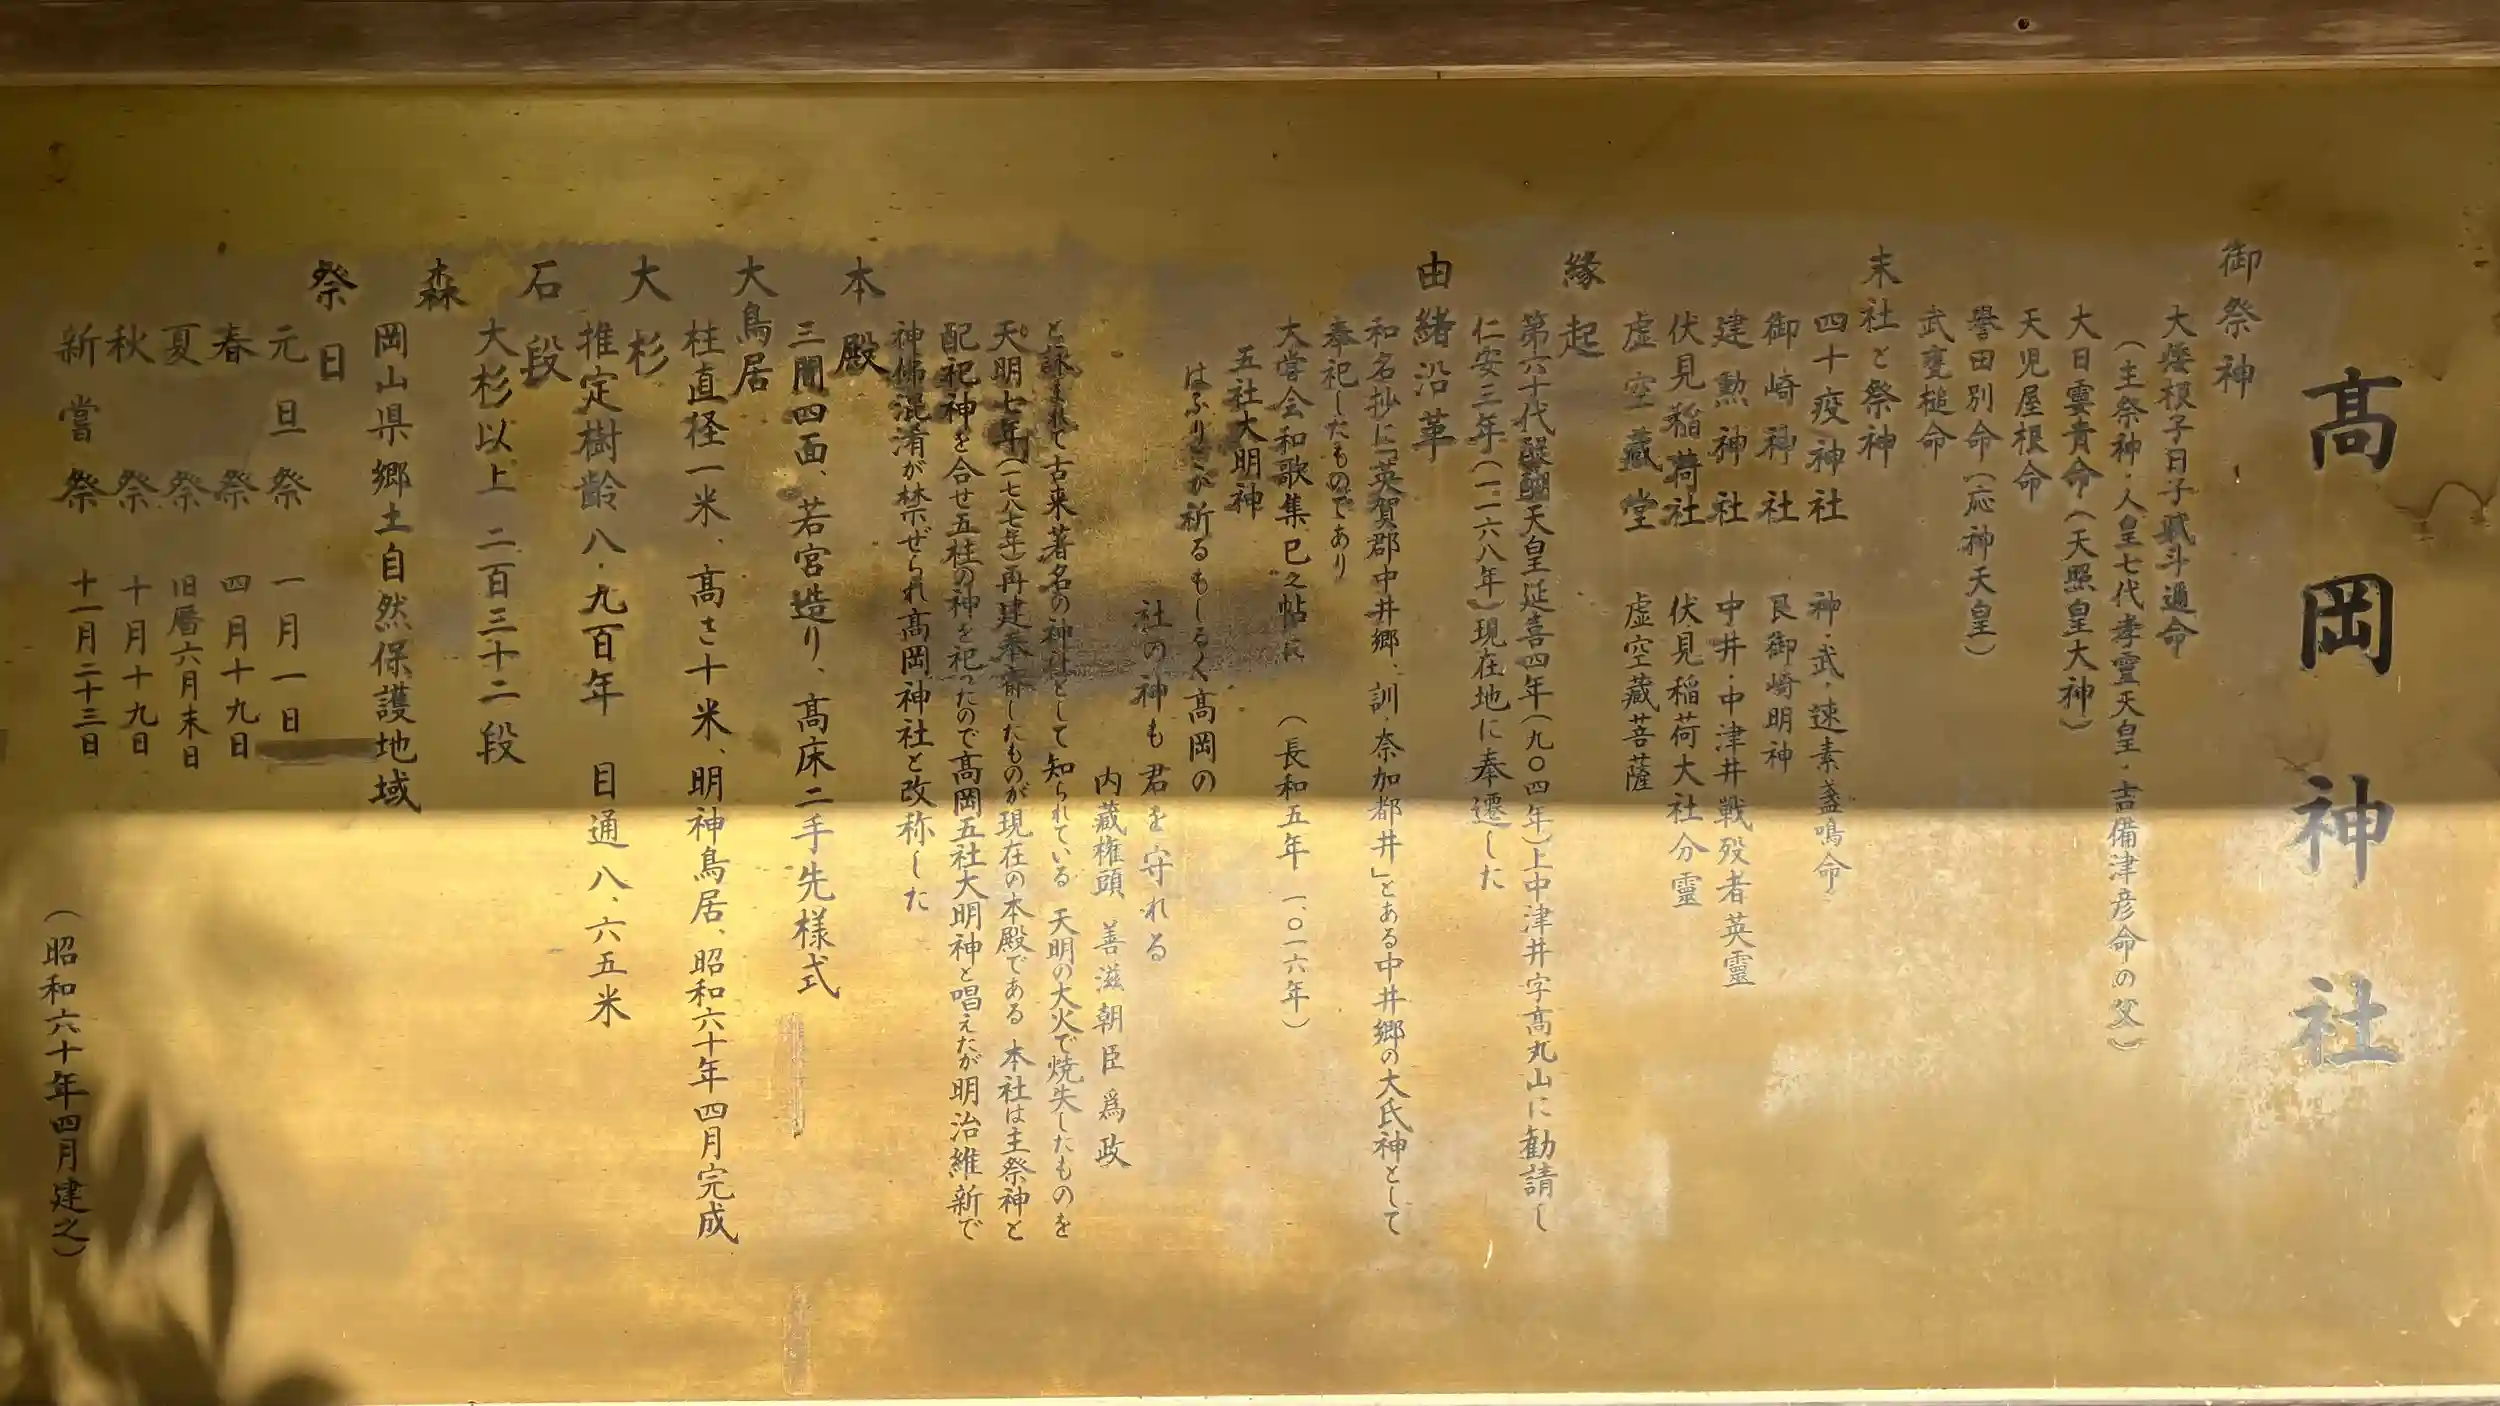 髙岡神社
御祭神
大倭根子日子賦斗邇命
(主祭神・人皇七代孝霊天皇・吉備津彦命の父)
大日孁貴命(天照皇大神)
天児屋根命
誉田別命(応神天皇)
武甕槌命
末社と祭神
四十疫神社 神・武・速素盞鳴命
御崎神社 艮御崎明神
建勲神社 中井・中津井戦歿者英靈
伏見稲荷社 伏見稲荷大社分靈
虚空蔵堂 虚空蔵菩薩
縁起
第六十代醍醐天皇延喜四年(九〇四年)上中津井字髙丸山に勧請し
仁安三年(一一六八年)現在地に奉遷した
由緒沿革
和名抄に「英賀郡中井郷、訓・奈加都井」とある中井郷の大氏神として
奉祀したものであり
大嘗会和歌集、巳之帖に (長和五年 一、〇一六年)
五社大明神
はふりとが祈るもしるく髙岡の
社の神も君を守れる
内蔵権頭 善滋朝臣為政
と詠まれて古来著名の神社として知られている 天明の大火で焼失したものを
天明七年(一七八七年)再建奉斎したものが現在の本殿である 本社は主祭神と
配祀神を合せ五柱の神を祀ったので髙岡五社大明神と唱えたが明治維新で
神佛混淆が禁ぜられ髙岡神社と改称した
本殿
三間四面、若宮造り、髙床二手先様式
大鳥居
柱直径一米、髙さ十米、明神鳥居、昭和六十年四月完成
大杉
推定樹齢八・九百年 目通八、六五米
石段
大杉以上 二百三十二段
森
岡山県郷土自然保護地域
祭日
元旦祭 一月一日
春祭 四月十九日
夏祭 旧暦六月末日
秋祭 十月十九日
新嘗祭 十一月二十三日
(昭和六十年四月建之)